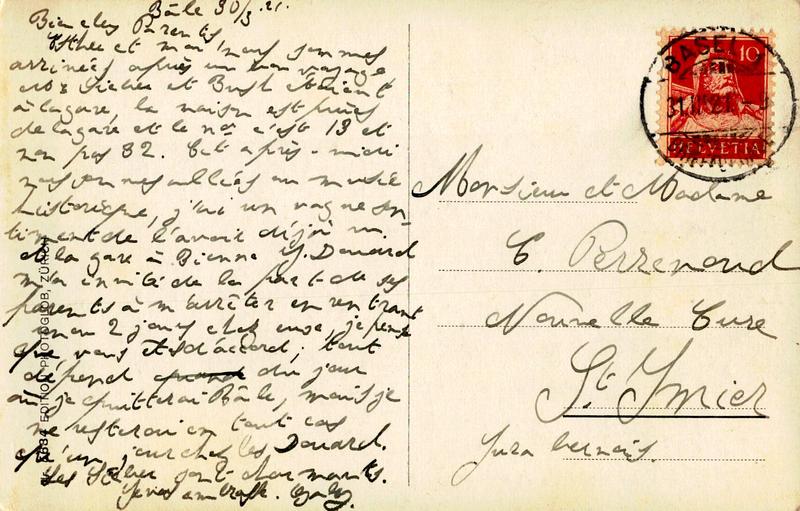 Bâle 30/3.21.
Bien chers Parents
Esther et moi nous sommes
arrivées après un bon voyage
et Bush étaient
à la gare, la maison est près
de la gare et le no. c'est 13 et
non pas 32. Cet après-midi
nous sommes allées au musée
historique, j'ai un vague sen-
timent de l'avoir déjà vu.
de la gare à Bienne Y. Douard
m'a invitée de la part de ses
parents à m'arrêter en rentrant
1 ou 2 jours chez eux, je pense
que vous êtes d'accord; tout
dépend du jour
où je quitterai Bâle, mais je
ne resterai en tout cas
qu'un jour chez les Douard.
Les sont charmants.
BASEL
31.III.21.
10
HELVETIA
Monsieur et Madame
C. Perrenoud
Nouvelle Cure
St. Imier
Jura bernois.
EDITION PHOTOGLOB, ZÜRICH